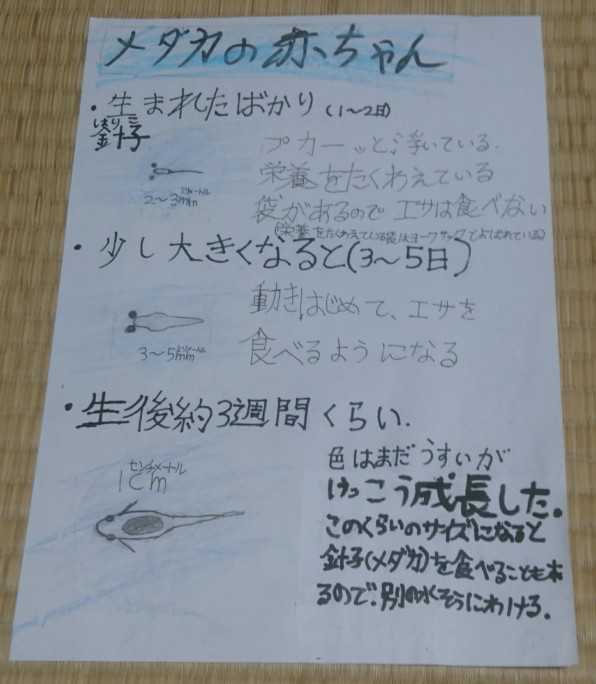 メダカの赤ちゃん
・生まれたばかり(1〜2日)
針子
プカーッと浮いている.
2〜3mm
ミリメートル
栄養をたくわえている
袋があるので エサは食べない
(栄養をたくわえている袋はヨークサックとよばれている)
・少し大きくなると(3〜5日)
動きはじめて、エサを
食べるようになる
3〜5mm
ミリメートル
・生後約3週間くらい.
センチメートル
1Cm
色はまだうすいが
けっこう成長した。
このくらいのサイズになると
針子(メダカ)を食べることもあ
るので.別の水そうにわける.